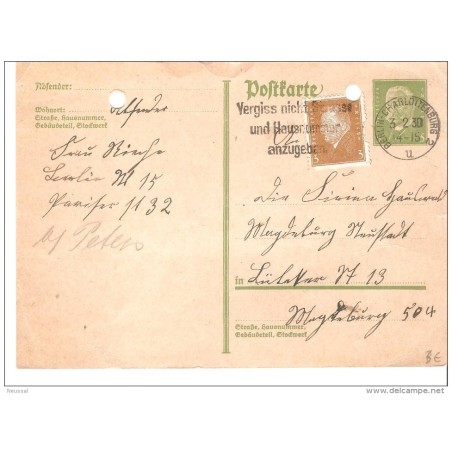 Absender:
Wohnort:
Straße, Hausnummer,
Gebäudeteil, Stockwerk
Absender
Frau
Berlin W 15
Pariser 32
Peters
Postkarte
Vergiss nicht
und Hausnummer
anzugeben
BERLIN-CHARLOTTENBURG 2
3.2.30
14-15
u
3
An die Firma
Magdeburg Neustadt
in Lübecker 13
Magdeburg 504
Straße, Hausnummer,
Gebäudeteil, Stockwerk
3€
Neussal
delcampe.net